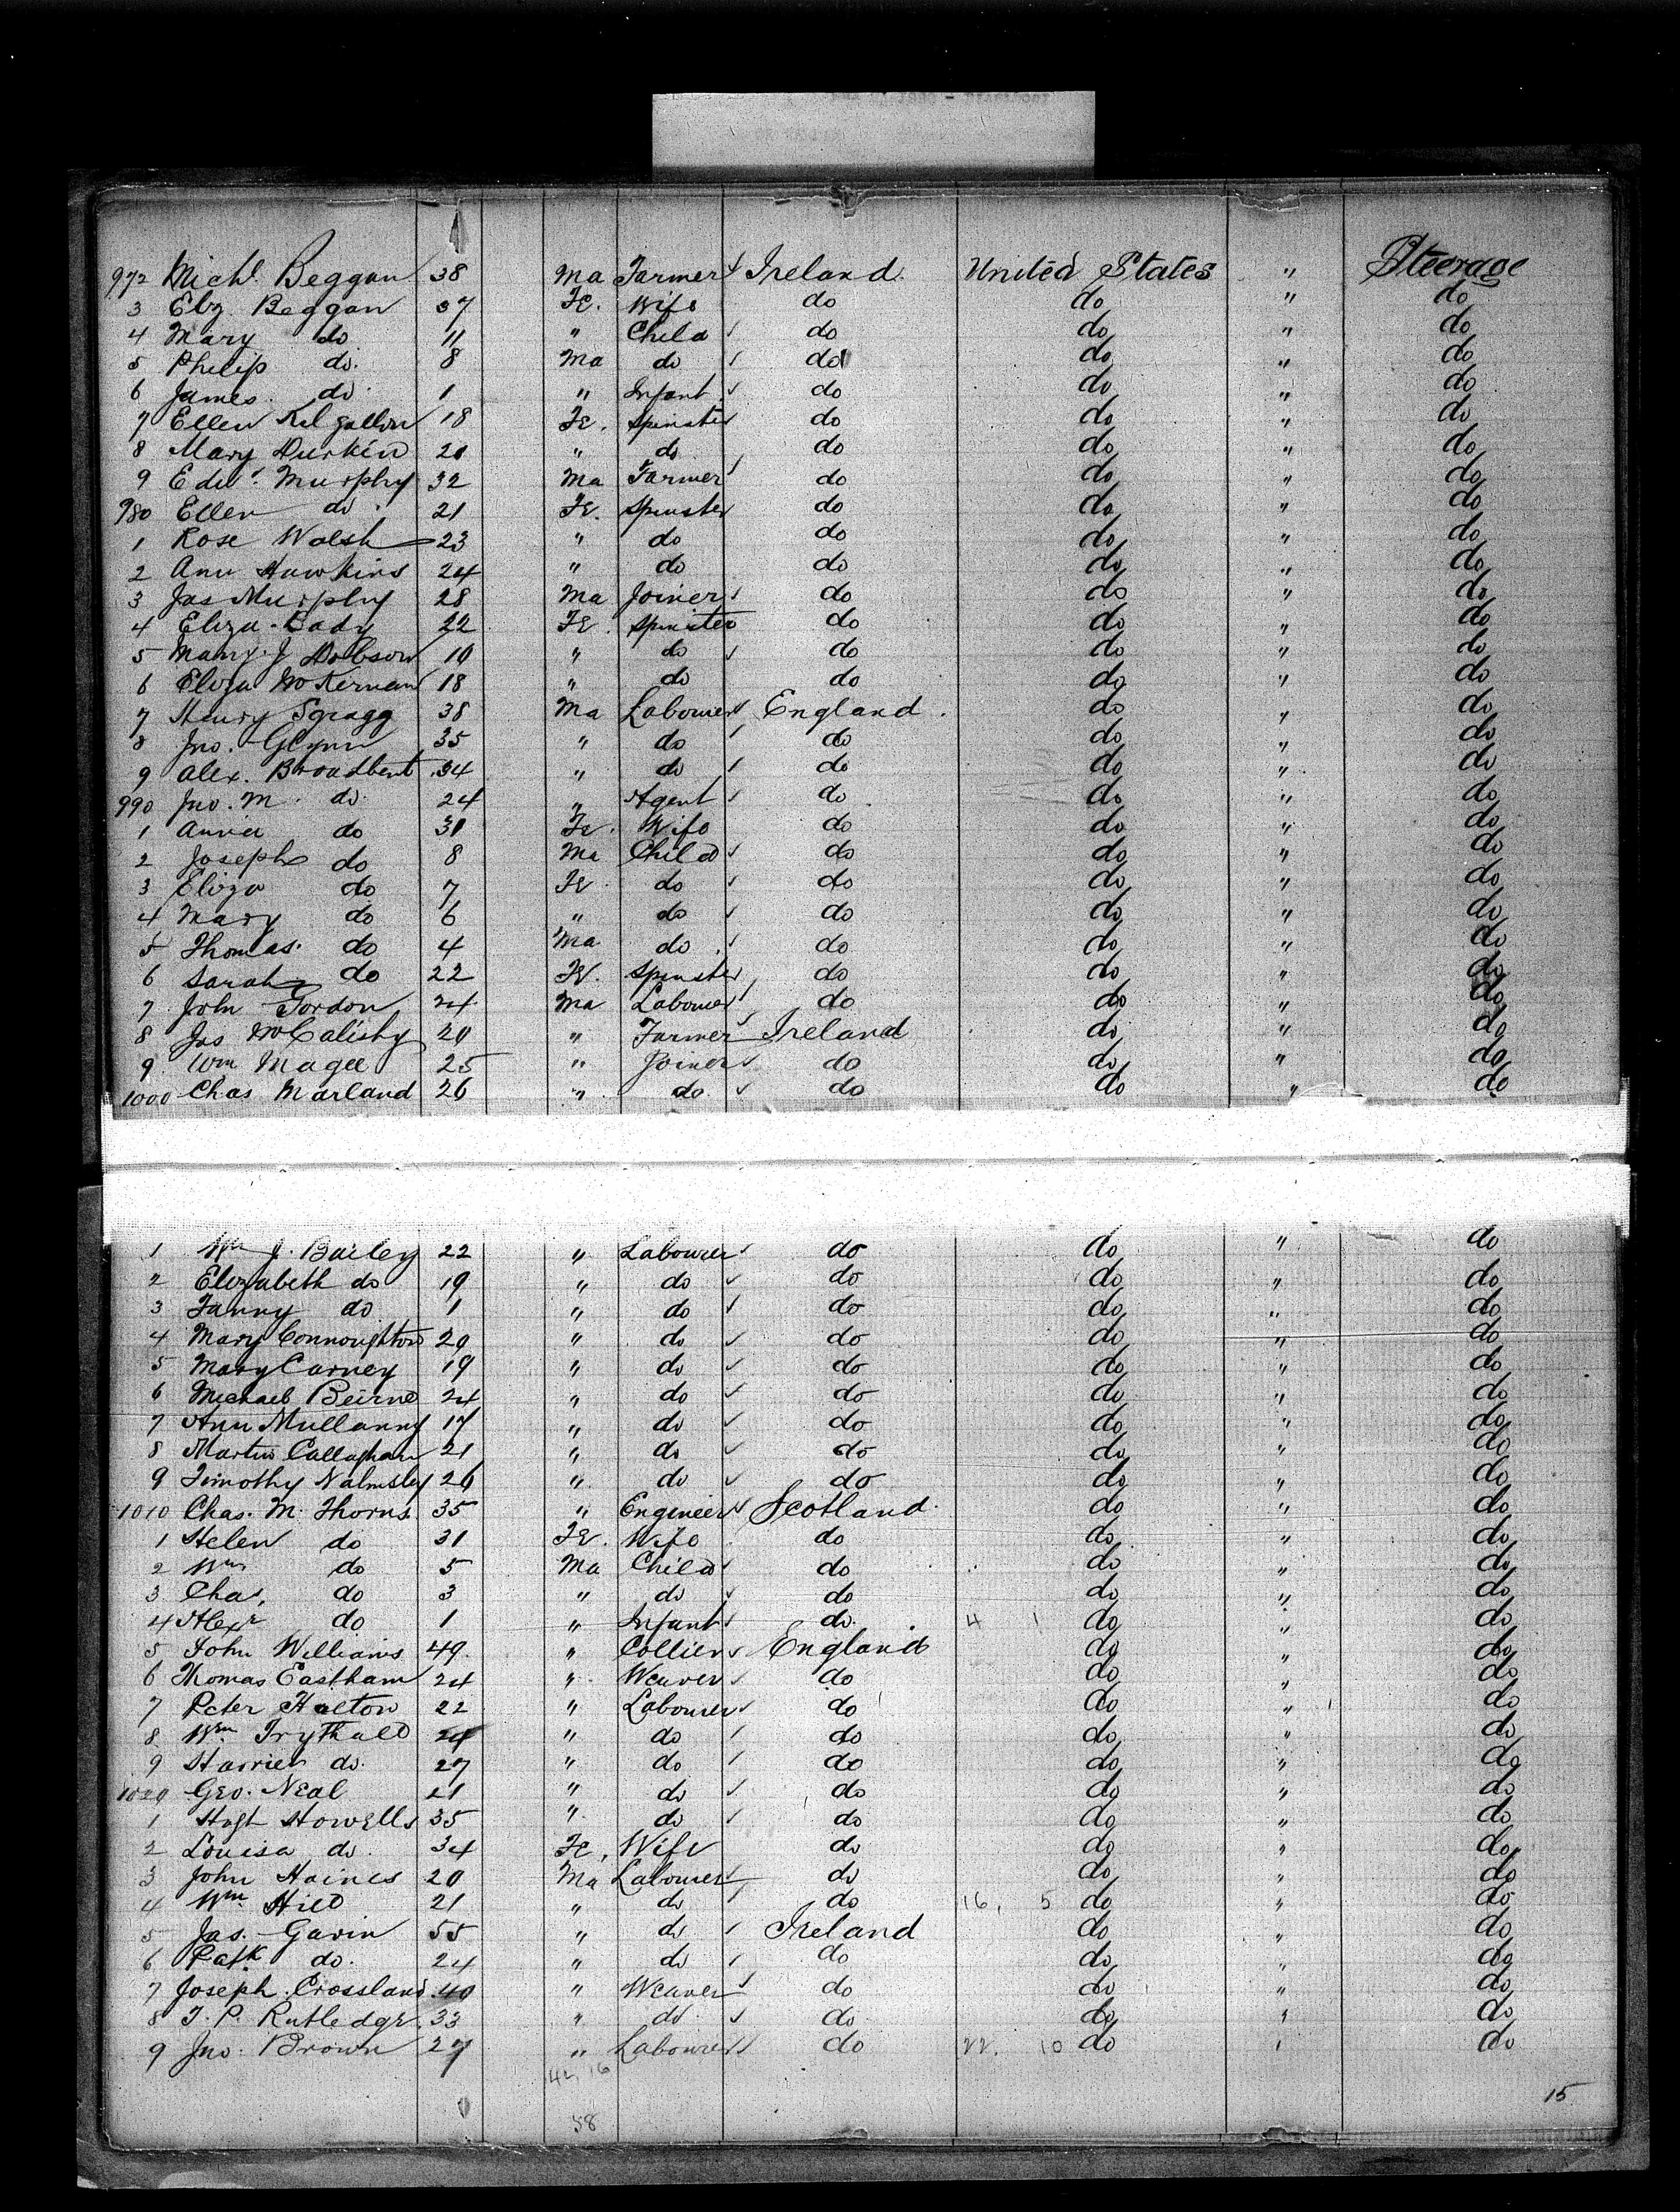 972 Michl. Beggan 38 Ma Farmer Ireland United States " Steerage
3 Elz. Beggan 37 Fe. Wife do do " do
4 Mary do 11 " Child do do " do
5 Philip do. 8 Ma do do do " do
6 James. do 1 " Infant do do " do
7 Ellen Kilgallon 18 Fe. Spinster do do " do
8 Mary Durkin 20 " do do do " do
9 Edwd. Murphy 32 Ma Farmer do do " do
980 Ellen do 21 Fe. Spinster do do " do
1 Rose Walsh 23 " do do do " do
2 Ann Hawkins 24 " do do do " do
3 Jas Murphy 28 Ma Joiner do do " do
4 Eliza Cady 22 Fe. Spinster do do " do
5 Mary J Dobson 10 " do do do " do
6 Eliza McKernan 18 " do do do " do
7 Henry Spragg 38 Ma Labourer England. do " do
8 Jno. Glynn 35 " do do do " do
9 Alex. Broadbent 34 " do do do " do
990 Jno. M. do. 24 " Agent do do " do
1 Annie do 31 Fe. Wife do do " do
2 Joseph do 8 Ma Child do do " do
3 Eliza do 7 Fe. do do do " do
4 Mary do 6 " do do do " do
5 Thomas. do 4 Ma do do do " do
6 Sarah do 22 Fe. Spinster do do " do
7 John Gordon 24 Ma Labourer do do " do
8 Jas 20 " Farmer Ireland do " do
9 Wm Magee 25 " Joiner do do " do
1000 Chas Marland 26 " do do do " do
1 Wm J. Bailey 22 " Labourer do do " do
2 Elizabeth do 19 " do do do " do
3 Fanny do 1 " do do do " do
4 Mary Connoughton 20 " do do do " do
5 Mary Carney 19 " do do do " do
6 Michael Beirne 24 " do do do " do
7 Ann Mullanny 17 " do do do " do
8 Martin Callaghan 21 " do do do " do
9 Timothy Walmsley 26 " do do do " do
1010 Chas. M. Thorns 35 " Engineer Scotland do " do
1 Helen do 31 Fe. Wife do do " do
2 Wm do 5 Ma Child do do " do
3 Cha. do 3 " do do do " do
4 Alexr do 1 " Infant do. 4 1 do " do
5 John Williams 49. " Collier England do " do
6 Thomas Eastham 24 " Weaver do do " do
7 Peter Halton 22 " Labourer do do " do
8 Wm. Trythall 24 " do do do " do
9 Harriet do. 27 " do do do " do
1020 Geo. Neal 21 " do do do " do
1 Hugh Howells 35 " do do do " do
2 Louisa do. 34 Fe. Wife do do " do
3 John Haines 20 Ma Labourer do do " do
4 Wm Hill 21 " do do 16, 5 do " do
5 Jas. Gavin 55 " do Ireland do " do
6 Patk. do. 24 " do do do " do
7 Joseph Crossland 40 " Weaver do do " do
8 T. P. Rutledge 33 " do do do " do
9 Jno. Brown 27 " Labourer do 22. 10 do " do
42 16
58
15